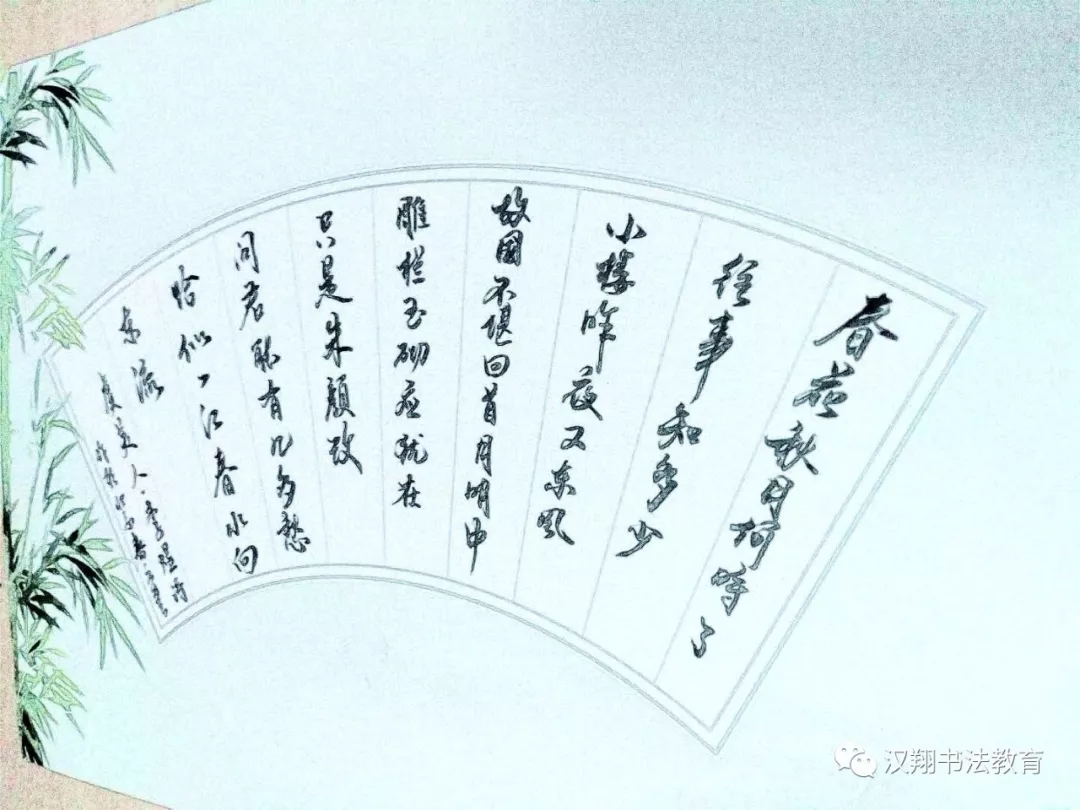 春花秋月何時了
往事知多少
小楼昨夜又东风
故國不堪回首月明中
雕栏玉砌应就在
只是朱颜改
问君能有几多愁
恰似一江春水向
东流
虞美人·李煜词
汉翔书法教育